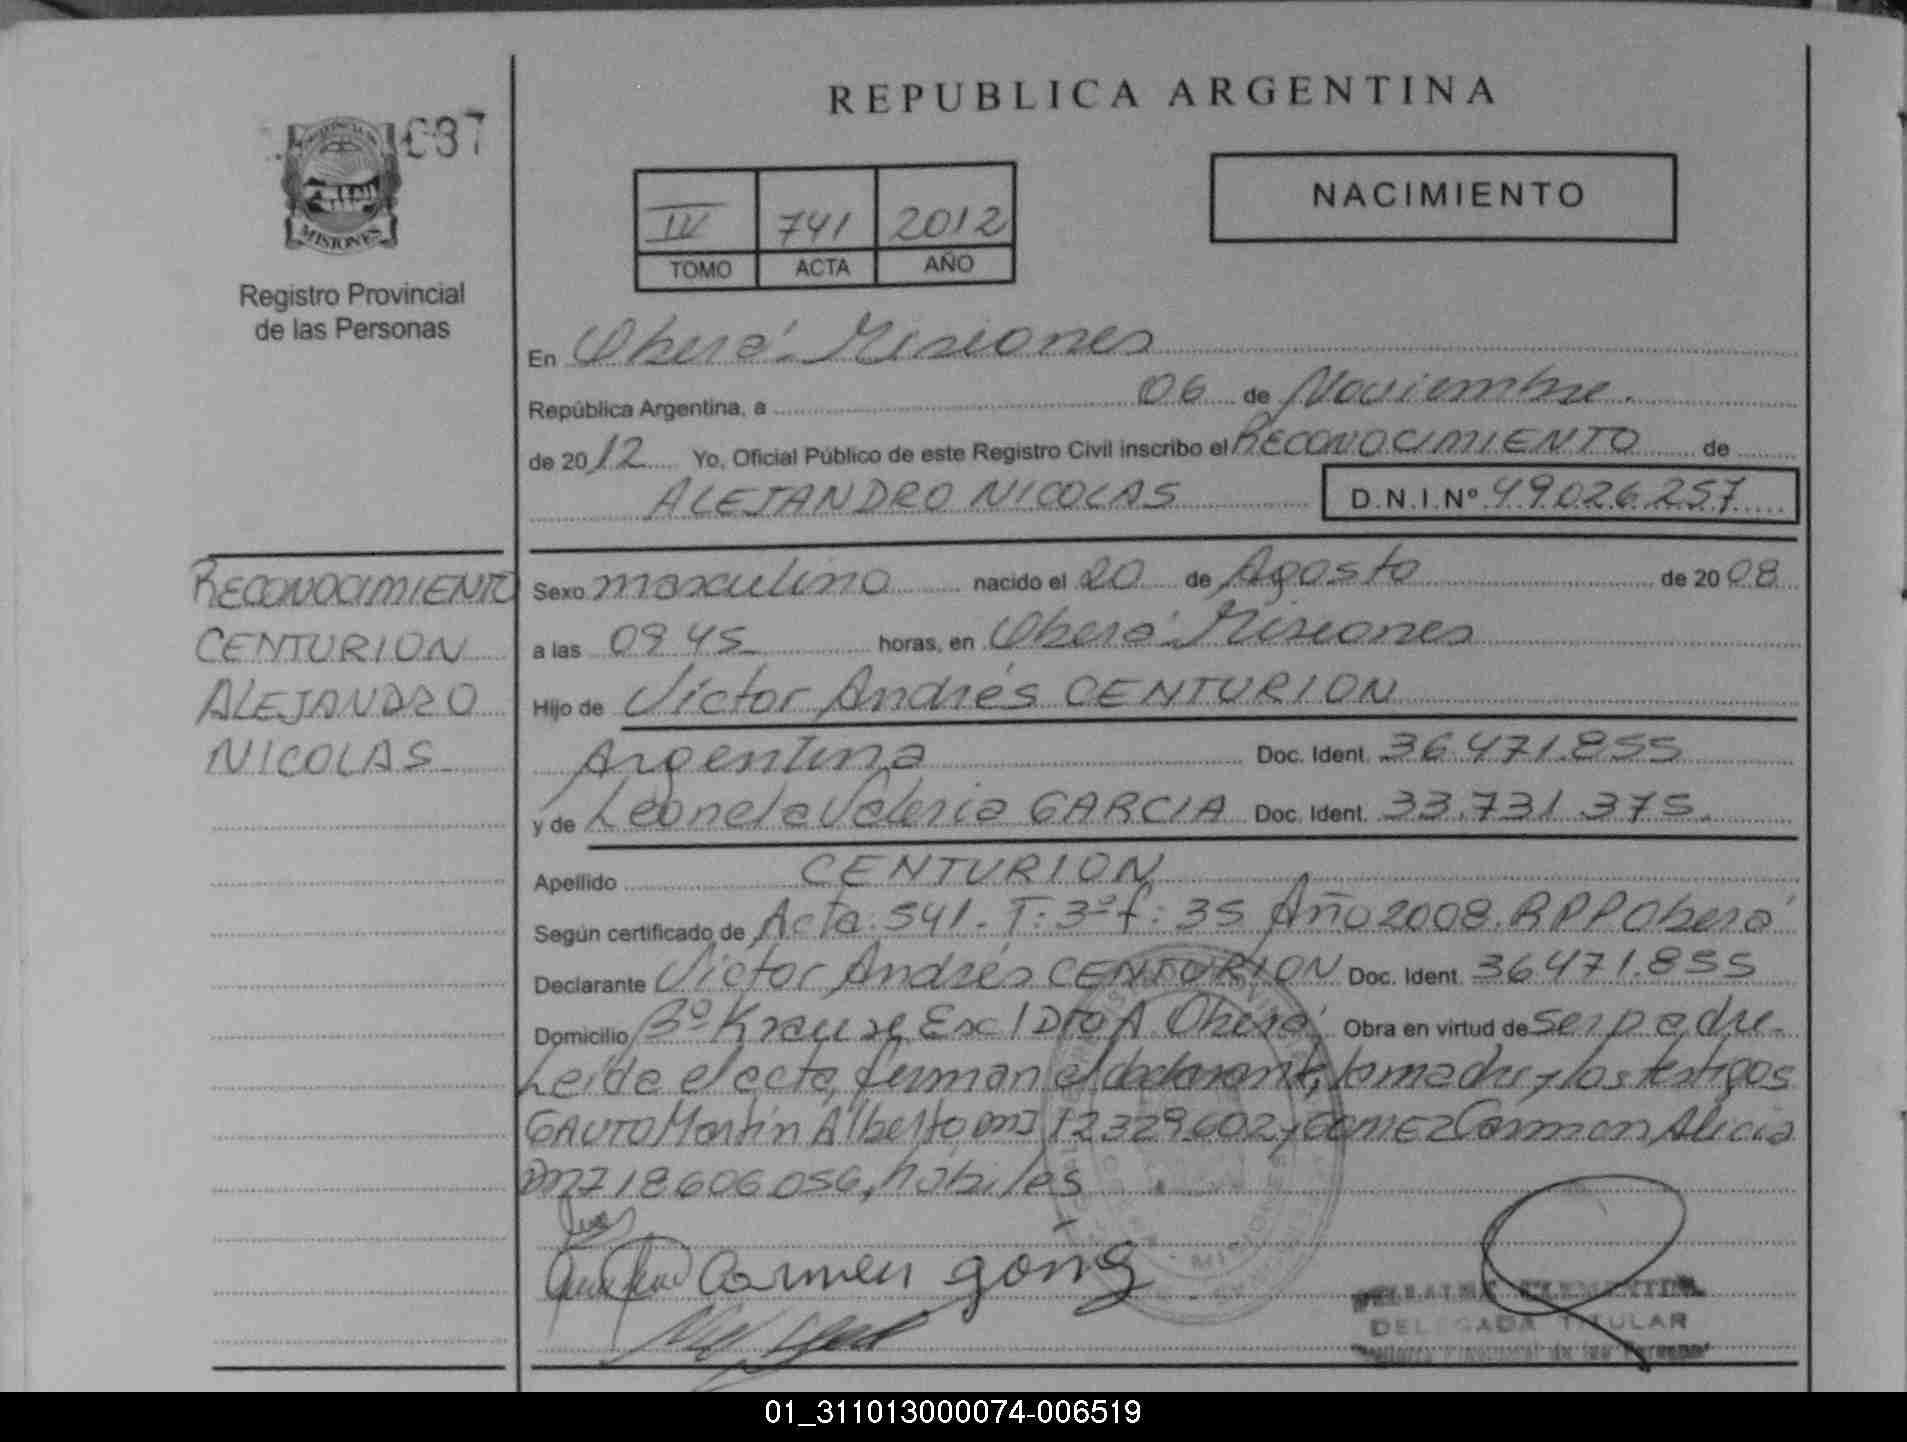 REPUBLICA ARGENTINA
037
MISIONES
Registro Provincial
de las Personas
IV 741 2012
TOMO ACTA AÑO
NACIMIENTO
En Oberá - Misiones
República Argentina, a 06 de Noviembre.
de 2012 Yo, Oficial Público de este Registro Civil inscribo el RECONOCIMIENTO de
ALEJANDRO NICOLAS D.N.I.Nº 49.026.257
RECONOCIMIENTO
CENTURION
ALEJANDRO
NICOLAS
Sexo masculino nacido el 20 de Agosto de 2008
a las 09 45 horas, en Oberá - Misiones
Hijo de Víctor Andrés CENTURION
Argentina Doc. Ident. 36.471.855
y de Leonela Valeria GARCIA Doc. Ident. 33.731.375.
Apellido CENTURION
Según certificado de Acta: 541. T: 3º f: 35 Año 2008. RPP Oberá
Declarante Víctor Andrés CENTURION Doc. Ident. 36.471.855
Domicilio Bº Krause Esc 1 Dto A Oberá Obra en virtud de ser padre
Leida el acta, firman el declarante, la madre y los testigos
GAUTO Martín Alberto DNI 12329602 y GOMEZ Carmen Alicia
DNI 18606056, hábiles
Carmen gómez
DELEGADA TITULAR
01_311013000074-006519